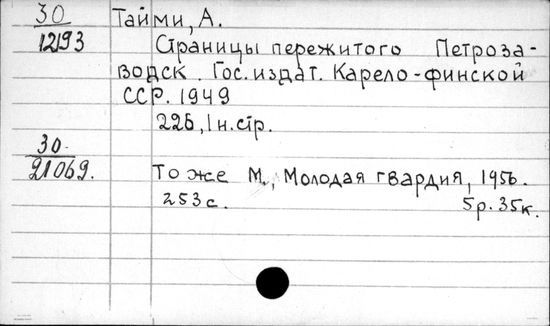 30
12193
Тайми, А.
Страницы пережитого Петроза-
водск. Гос. издат. Карело-финской
ССР. 1949
226, 1 н. стр.
30
21069.
То же М., Молодая гвардия, 1956.
253 с. 5 р. 35 к.